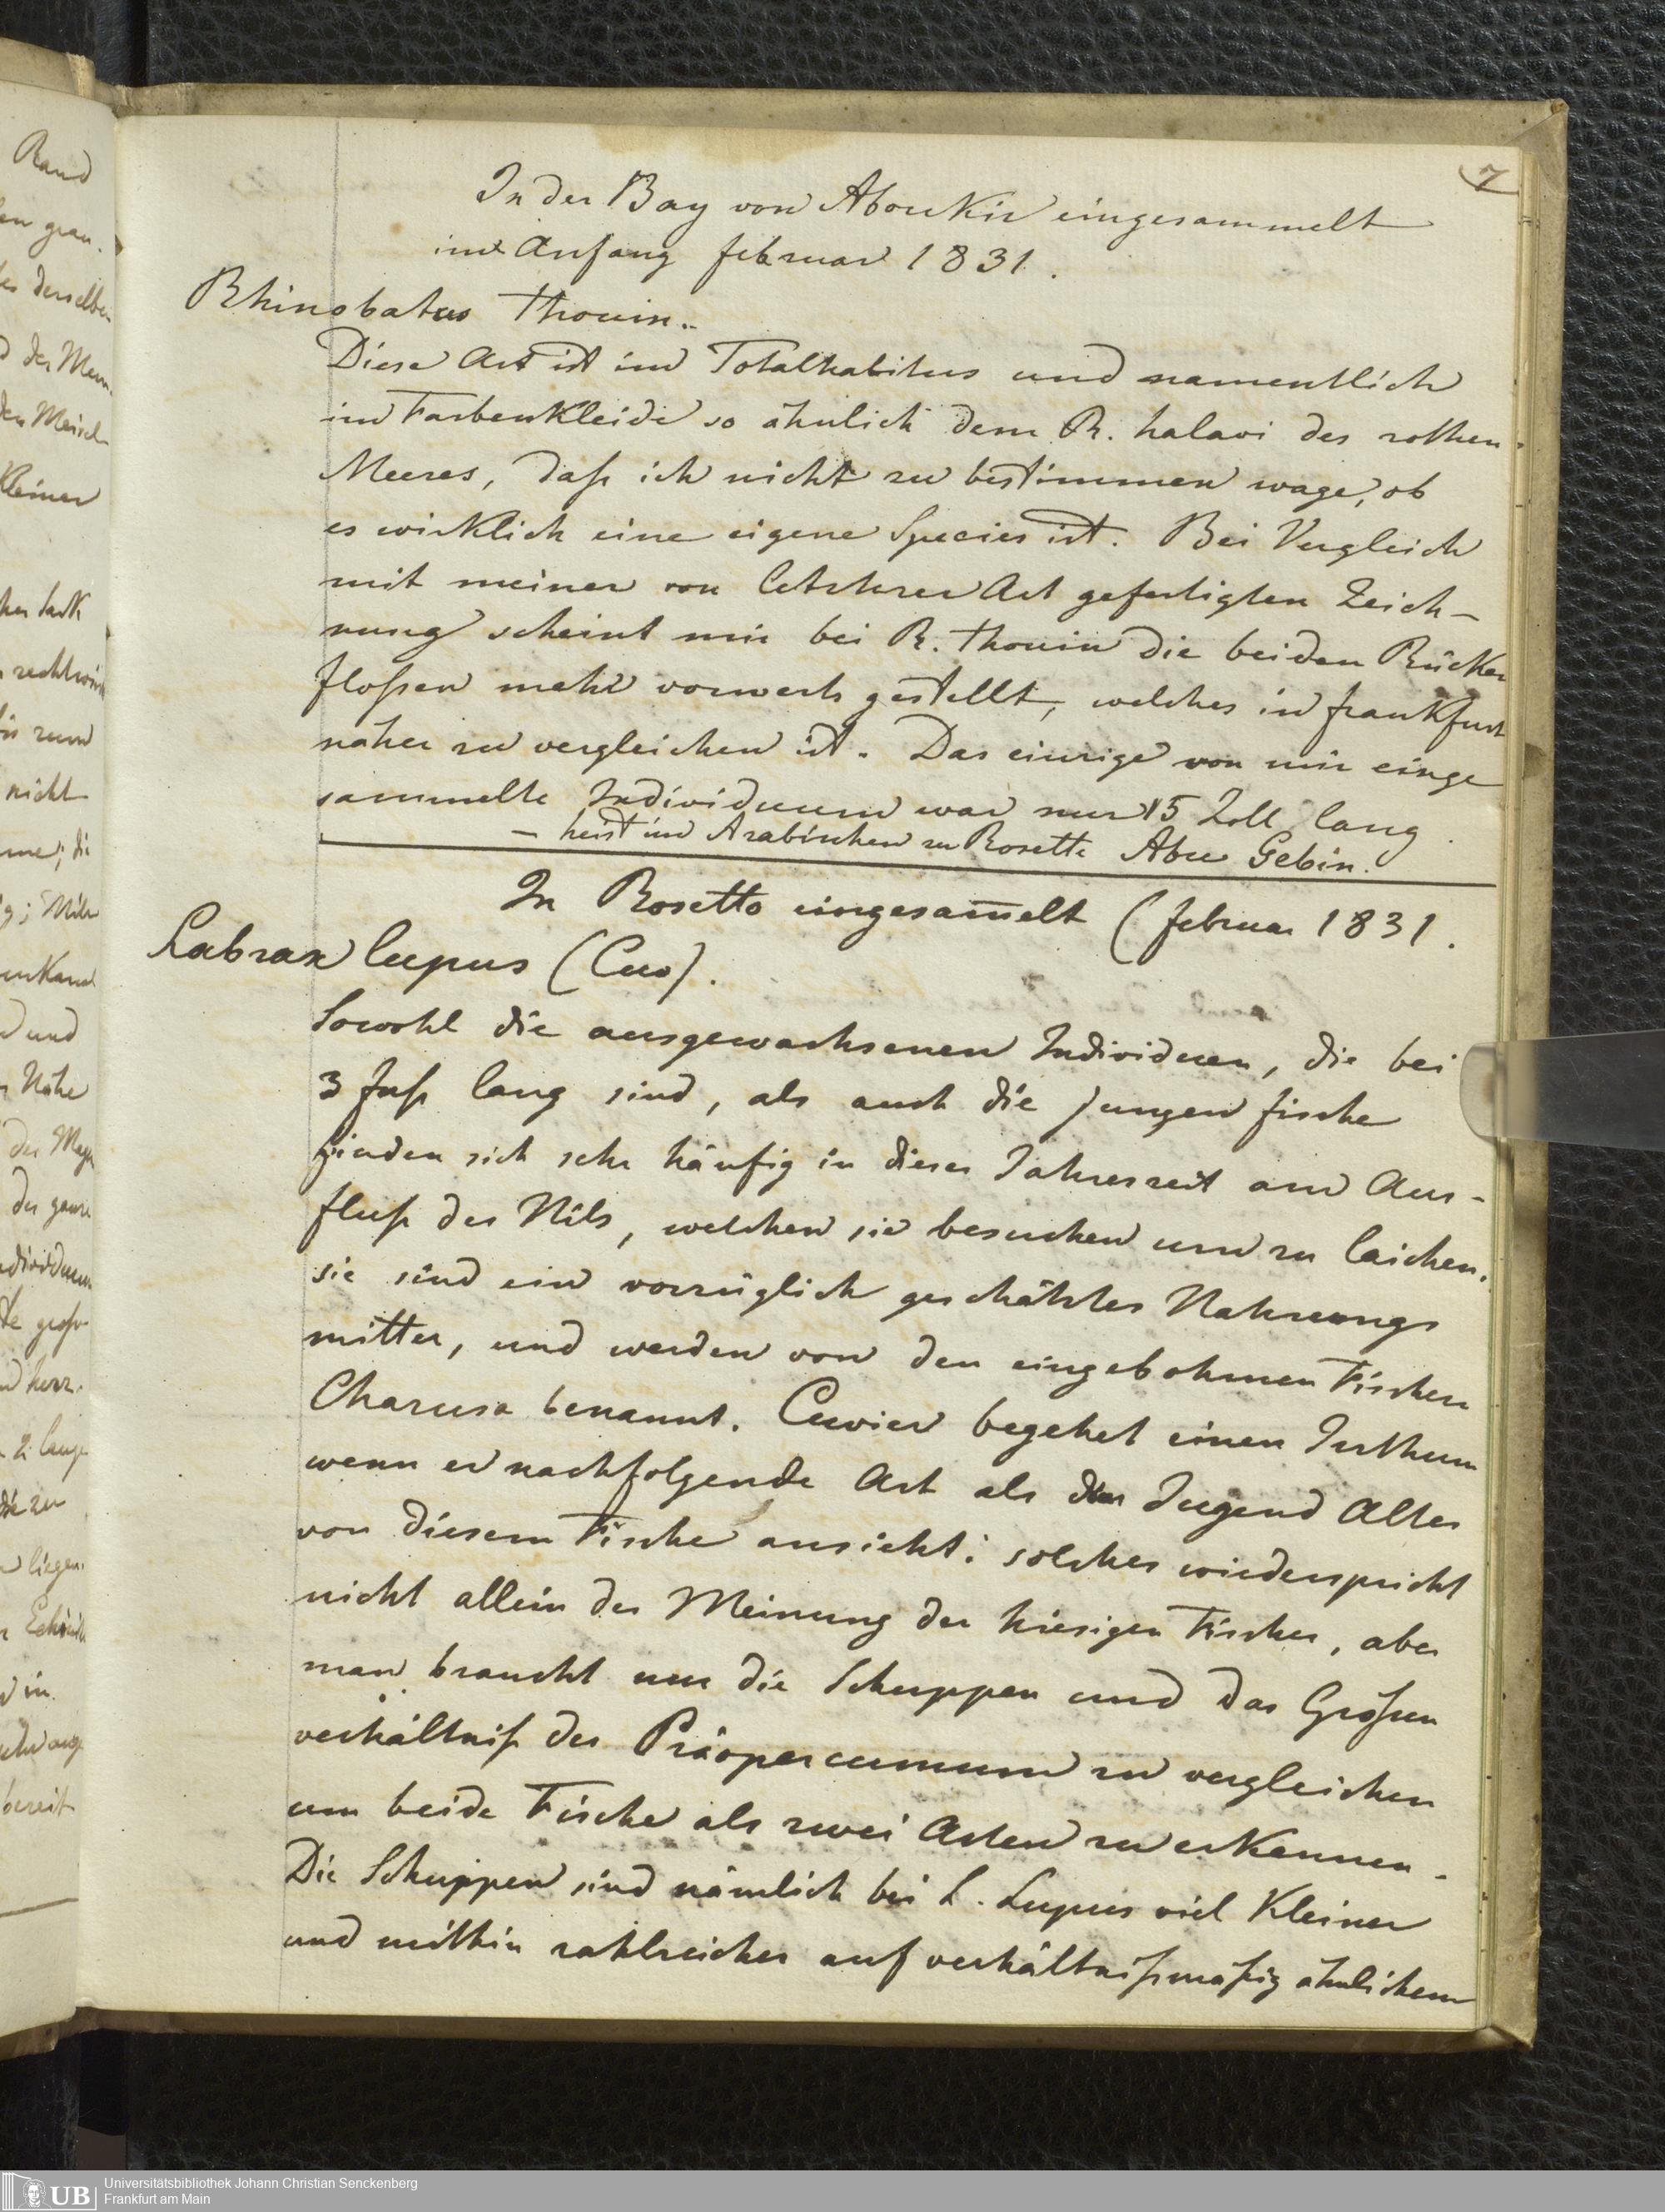 7
In der Bay von Aboukir eingesammelt
im Anfang februar 1831.
Rhinobatus Thouin.
Diese Art ist im Totalhabitus und namentlich
im Farbenkleide so ähnlich dem R. halavi des rothen
Meeres, daß ich nicht zu bestimmen wage, ob
es wirklich eine eigene Species ist. Bei Vergleich
mit meiner von letzterer Art gefertigten Zeich-
nung scheint mir bei R. Thouin die beiden Rücken
floßen mehr vorwerts gestellt, welches in frankfurt
näher zu vergleichen ist. Das einzige von mir einge
sammelte Individuum war nur 15 Zoll lang
– heist im Arabischen zu Rosette Abu Gebin.
In Rosetto eingesam̅elt (februar 1831.
Labrax lupus (Cuv).
Sowohl die ausgewachsenen Individuen, die bei
3 fuß lang sind, als auch die jungen fische
finden sich sehr häufig in dieser Jahreszeit am Aus-
fluß des Nils, welchen sie besuchen um zu laichen.
sie sind ein vorzüglich geschätztes Nahrungs
mittel, und werden von den eingebohrnen Fischern
Charusa benannt. Cuvier begehet einen Irthum
wenn er nachfolgende Art als das Jugend Alter
von diesem Fische ansieht: solches wiederspricht
nicht allein der Meinung der hiesigen Fischer, aber
man braucht nur die Schuppen und das Großen
verhältniß des Präopercumum zu vergleichen
um beide Fische als zwei Arten zu erkennen.
Die Schuppen sind nämlich bei L. Lupus viel kleiner
und mithin zahlreicher auf verhältnißmäßig ähnlichem
Rand
derselben
kleiner
zum
nicht
und
Nähe
bereit
UB Universitätsbibliothek Johann Christian Senckenberg
Frankfurt am Main